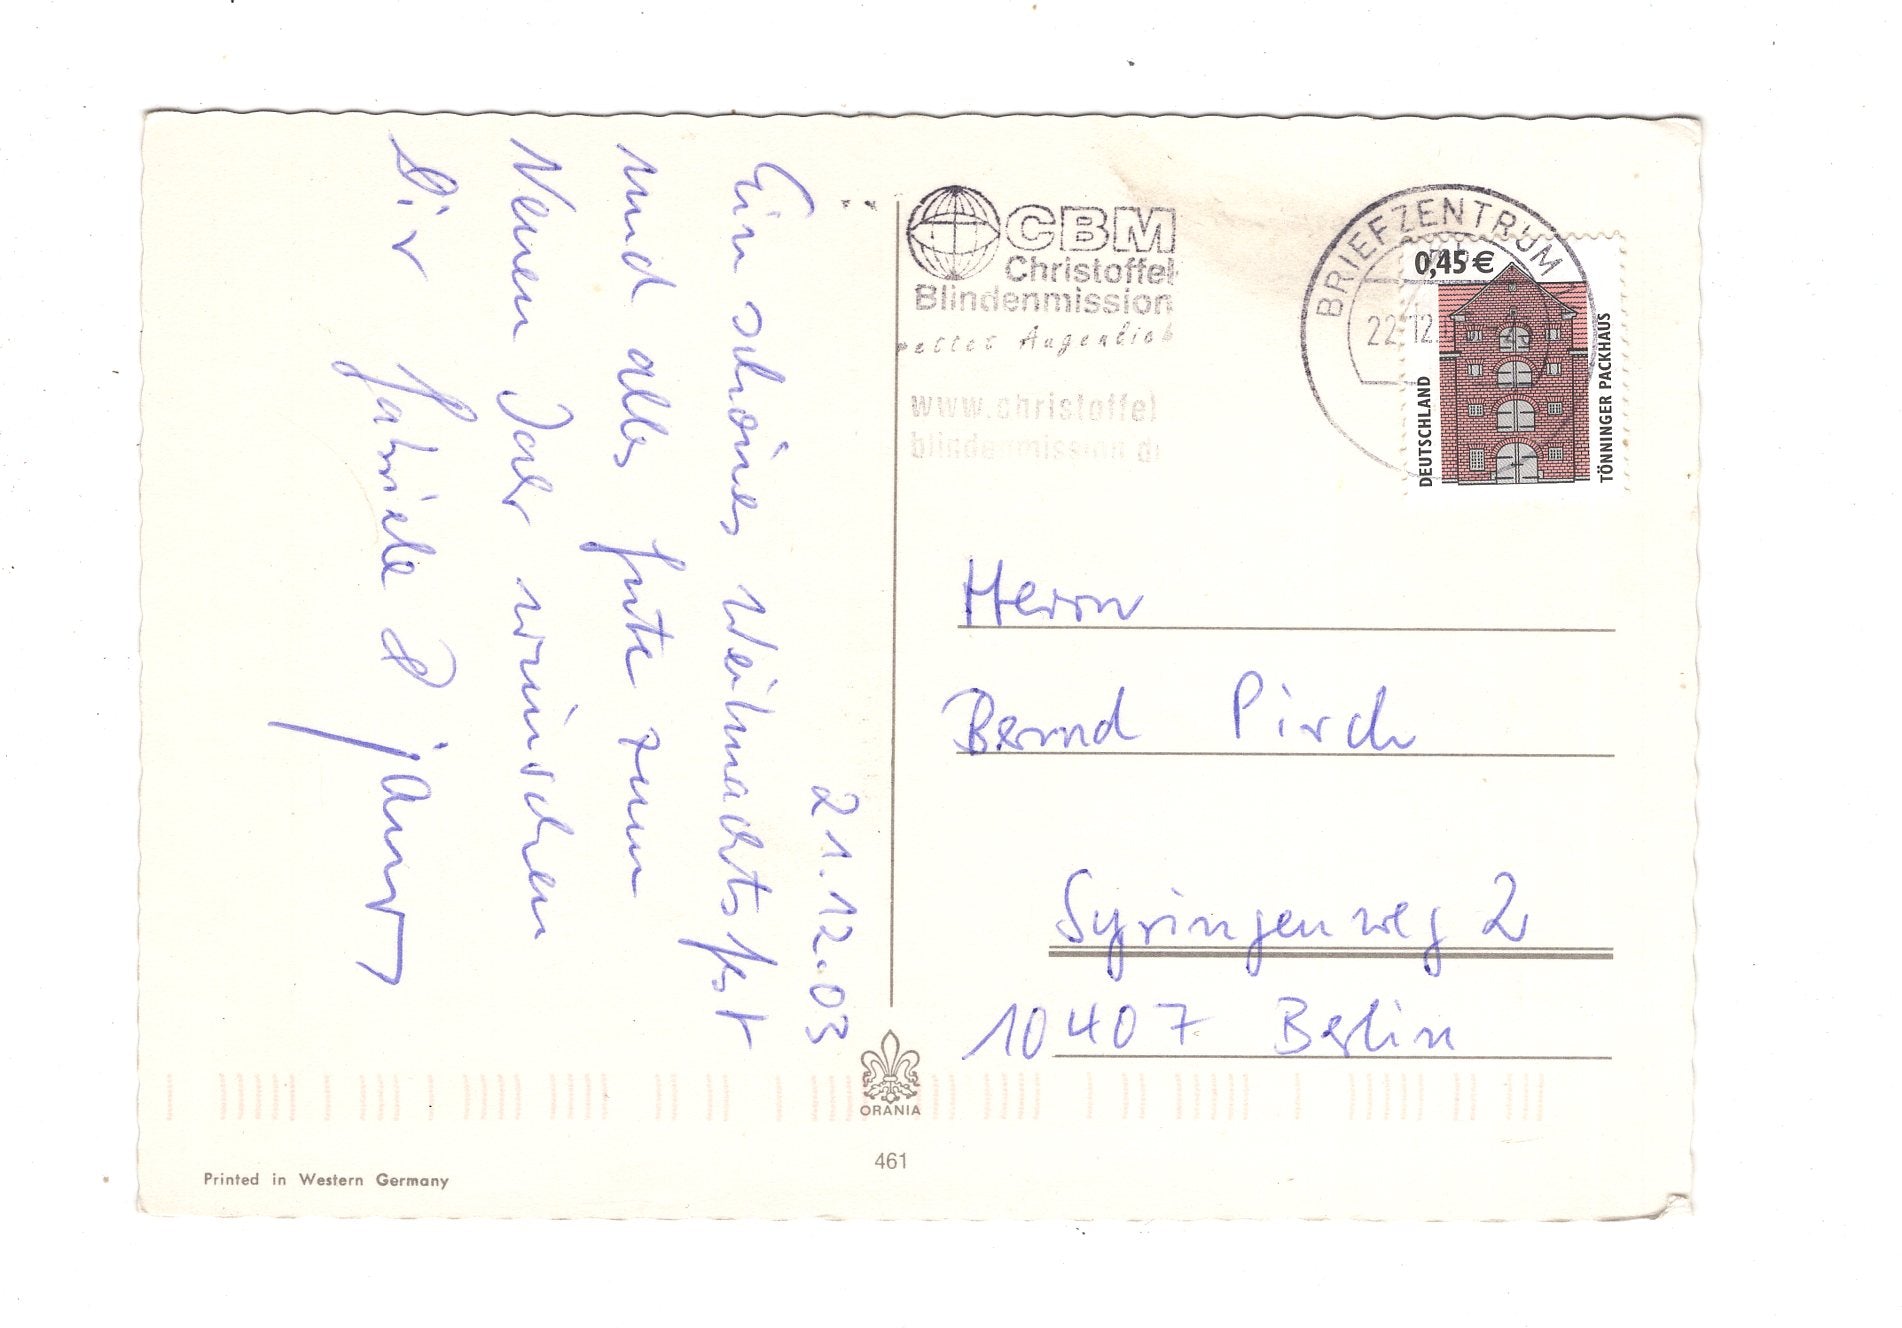 21.12.03
Ein schönes Weihnachtsfest
und alles gute zum
Neuen Jahr wünschen
Dir Gabriele &
CBM
Christoffel
Blindenmission
rettet Augenlich
www.christoffel
blindenmission.d
BRIEFZENTRUM
22.12.
0,45 €
DEUTSCHLAND
TÖNNINGER PACKHAUS
Herrn
Bernd Pirch
Syringenweg 2
10407 Berlin
ORANIA
461
Printed in Western Germany